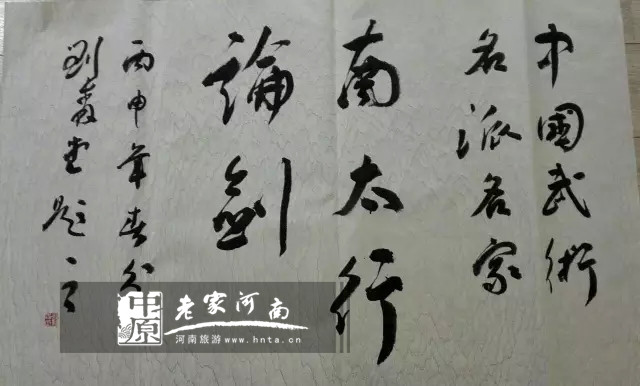 中國武術
名派名家
南太行
論劍
丙申年春分
劉森堂題
中原
老家河南
河南旅游 www.hnta.cn